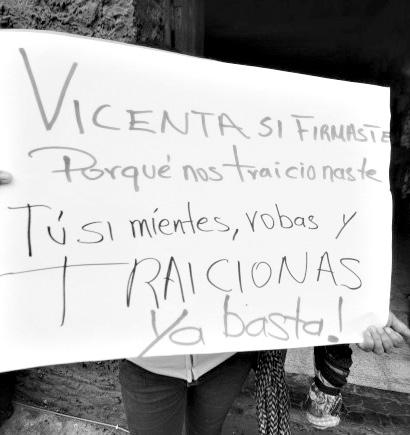 VICENTA SI FIRMASTE
Porqué nos traicionaste
Tú SI mientes, robas y
TRAICIONAS
Ya basta!